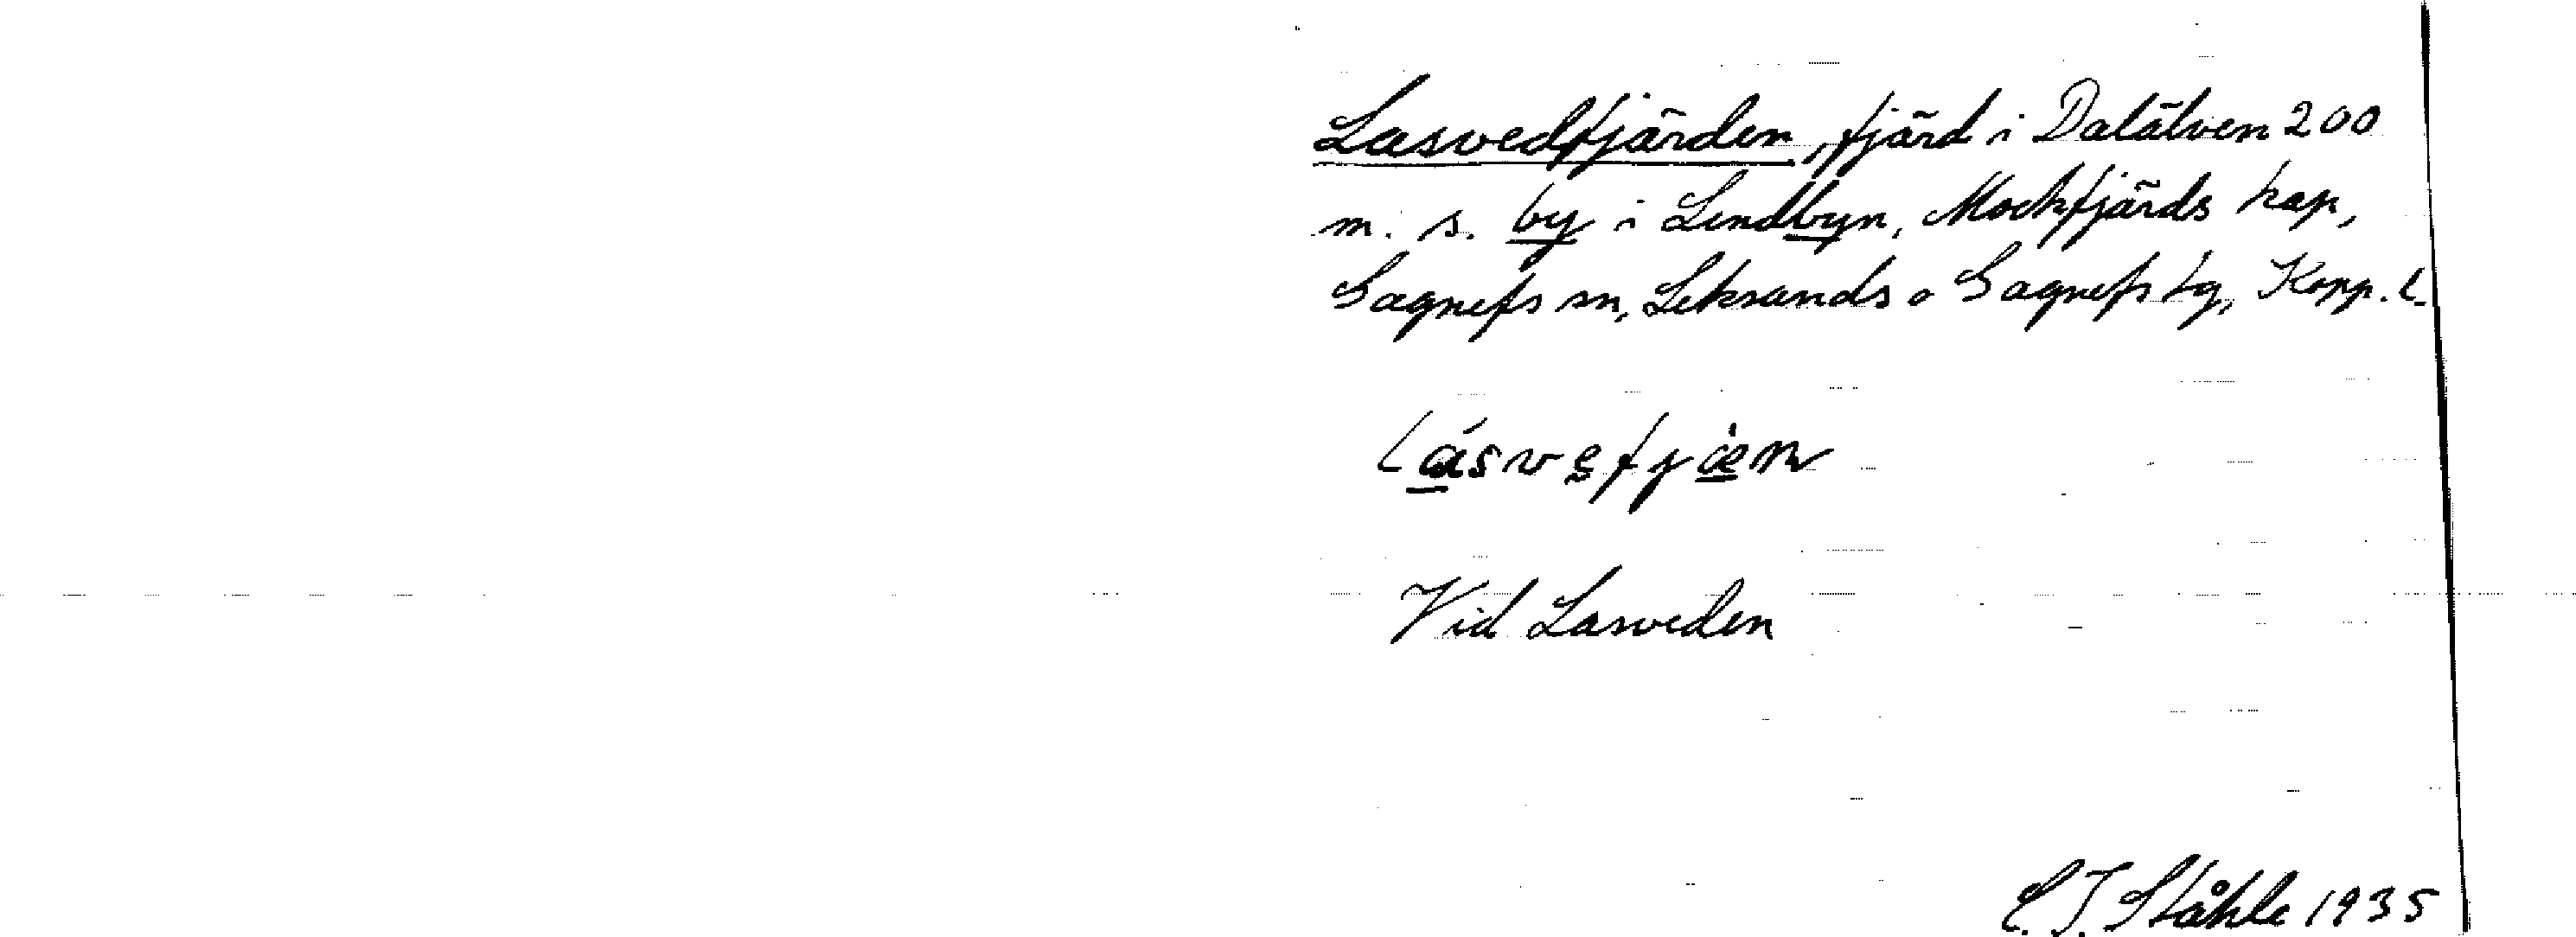 Lasvedfjärden, fjärd i Dalälven 200
m. s. by i Lindbyn, Mockfjärds kap,
Gagnefs sn, Leksands o Gagnefs tg, Kopp. l.
lásvefjæn
Vid Lasveden
C. I. Ståhle 1935